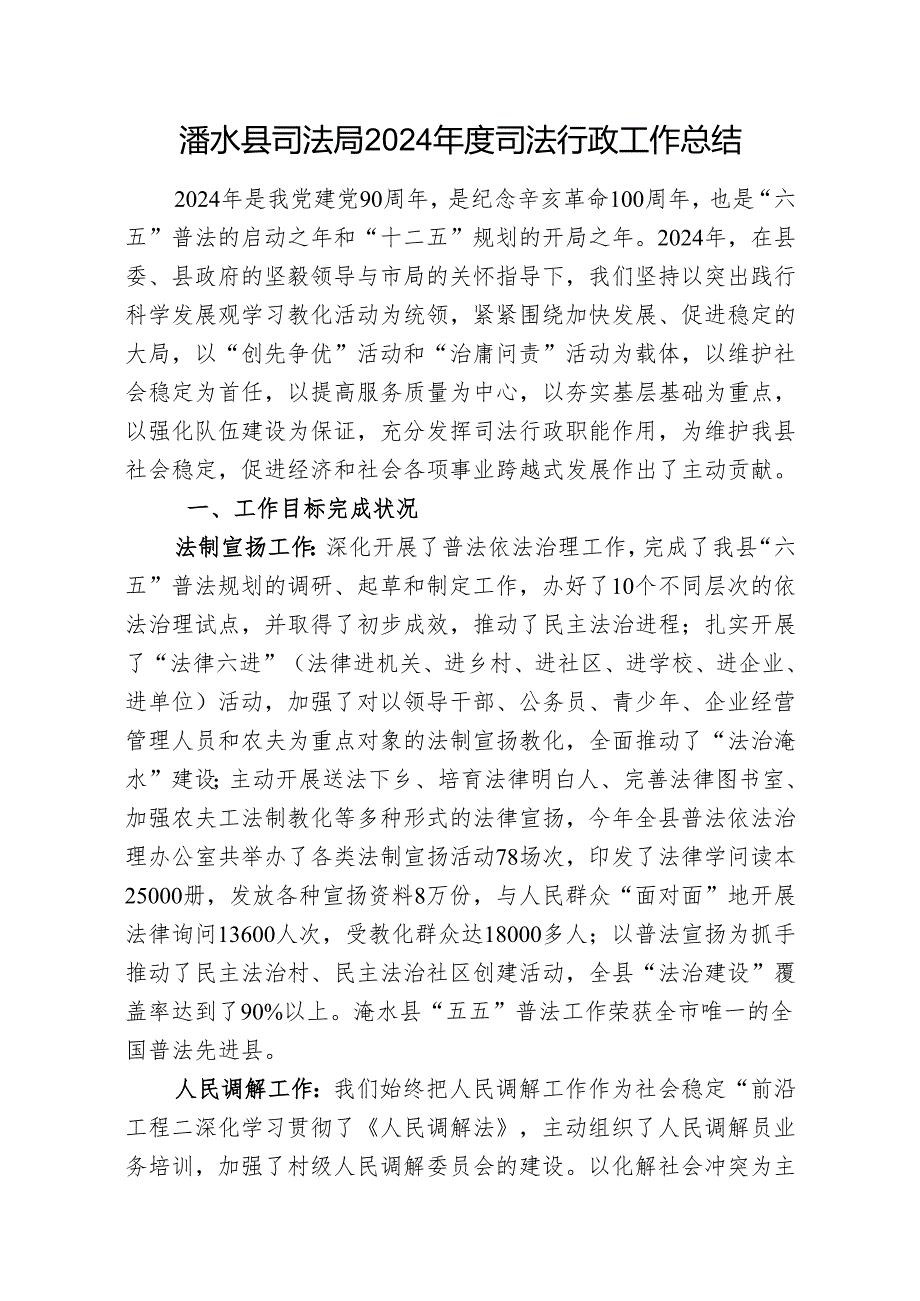 潘水县司法局2024年度司法行政工作总结
2024年是我党建党90周年，是纪念辛亥革命100周年，也是“六
五”普法的启动之年和“十二五”规划的开局之年。2024年，在县
委、县政府的坚毅领导与市局的关怀指导下，我们坚持以突出践行
科学发展观学习教化活动为统领，紧紧围绕加快发展、促进稳定的
大局，以“创先争优”活动和“治庸问责”活动为载体，以维护社
会稳定为首任，以提高服务质量为中心，以夯实基层基础为重点，
以强化队伍建设为保证，充分发挥司法行政职能作用，为维护我县
社会稳定，促进经济和社会各项事业跨越式发展作出了主动贡献。
一、工作目标完成状况
法制宣扬工作：深化开展了普法依法治理工作，完成了我县“六
五”普法规划的调研、起草和制定工作，办好了10个不同层次的依
法治理试点，并取得了初步成效，推动了民主法治进程；扎实开展
了“法律六进”（法律进机关、进乡村、进社区、进学校、进企业、
进单位）活动，加强了对以领导干部、公务员、青少年、企业经营
管理人员和农夫为重点对象的法制宣扬教化，全面推动了“法治淹
水”建设；主动开展送法下乡、培育法律明白人、完善法律图书室、
加强农夫工法制教化等多种形式的法律宣扬，今年全县普法依法治
理办公室共举办了各类法制宣扬活动78场次，印发了法律学问读本
25000册，发放各种宣扬资料8万份，与人民群众“面对面”地开展
法律询问13600人次，受教化群众达18000多人；以普法宣扬为抓手
推动了民主法治村、民主法治社区创建活动，全县“法治建设”覆
盖率达到了90%以上。淹水县“五五”普法工作荣获全市唯一的全
国普法先进县。
人民调解工作：我们始终把人民调解工作作为社会稳定“前沿
工程二深化学习贯彻了《人民调解法》，主动组织了人民调解员业
务培训，加强了村级人民调解委员会的建设。以化解社会冲突为主